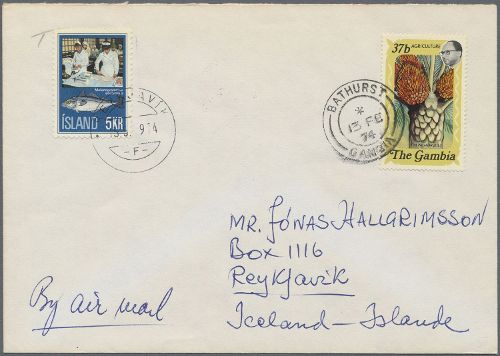 T
ÍSLAND 5KR
37b AGRICULTURE
The Gambia
BATHURST
*
13 FE
74
GAMBIA
-F-
MR. JÓNAS HALLGRIMSSON
BOX 1116
REYKJAVIK
Iceland-Islande
By air mail